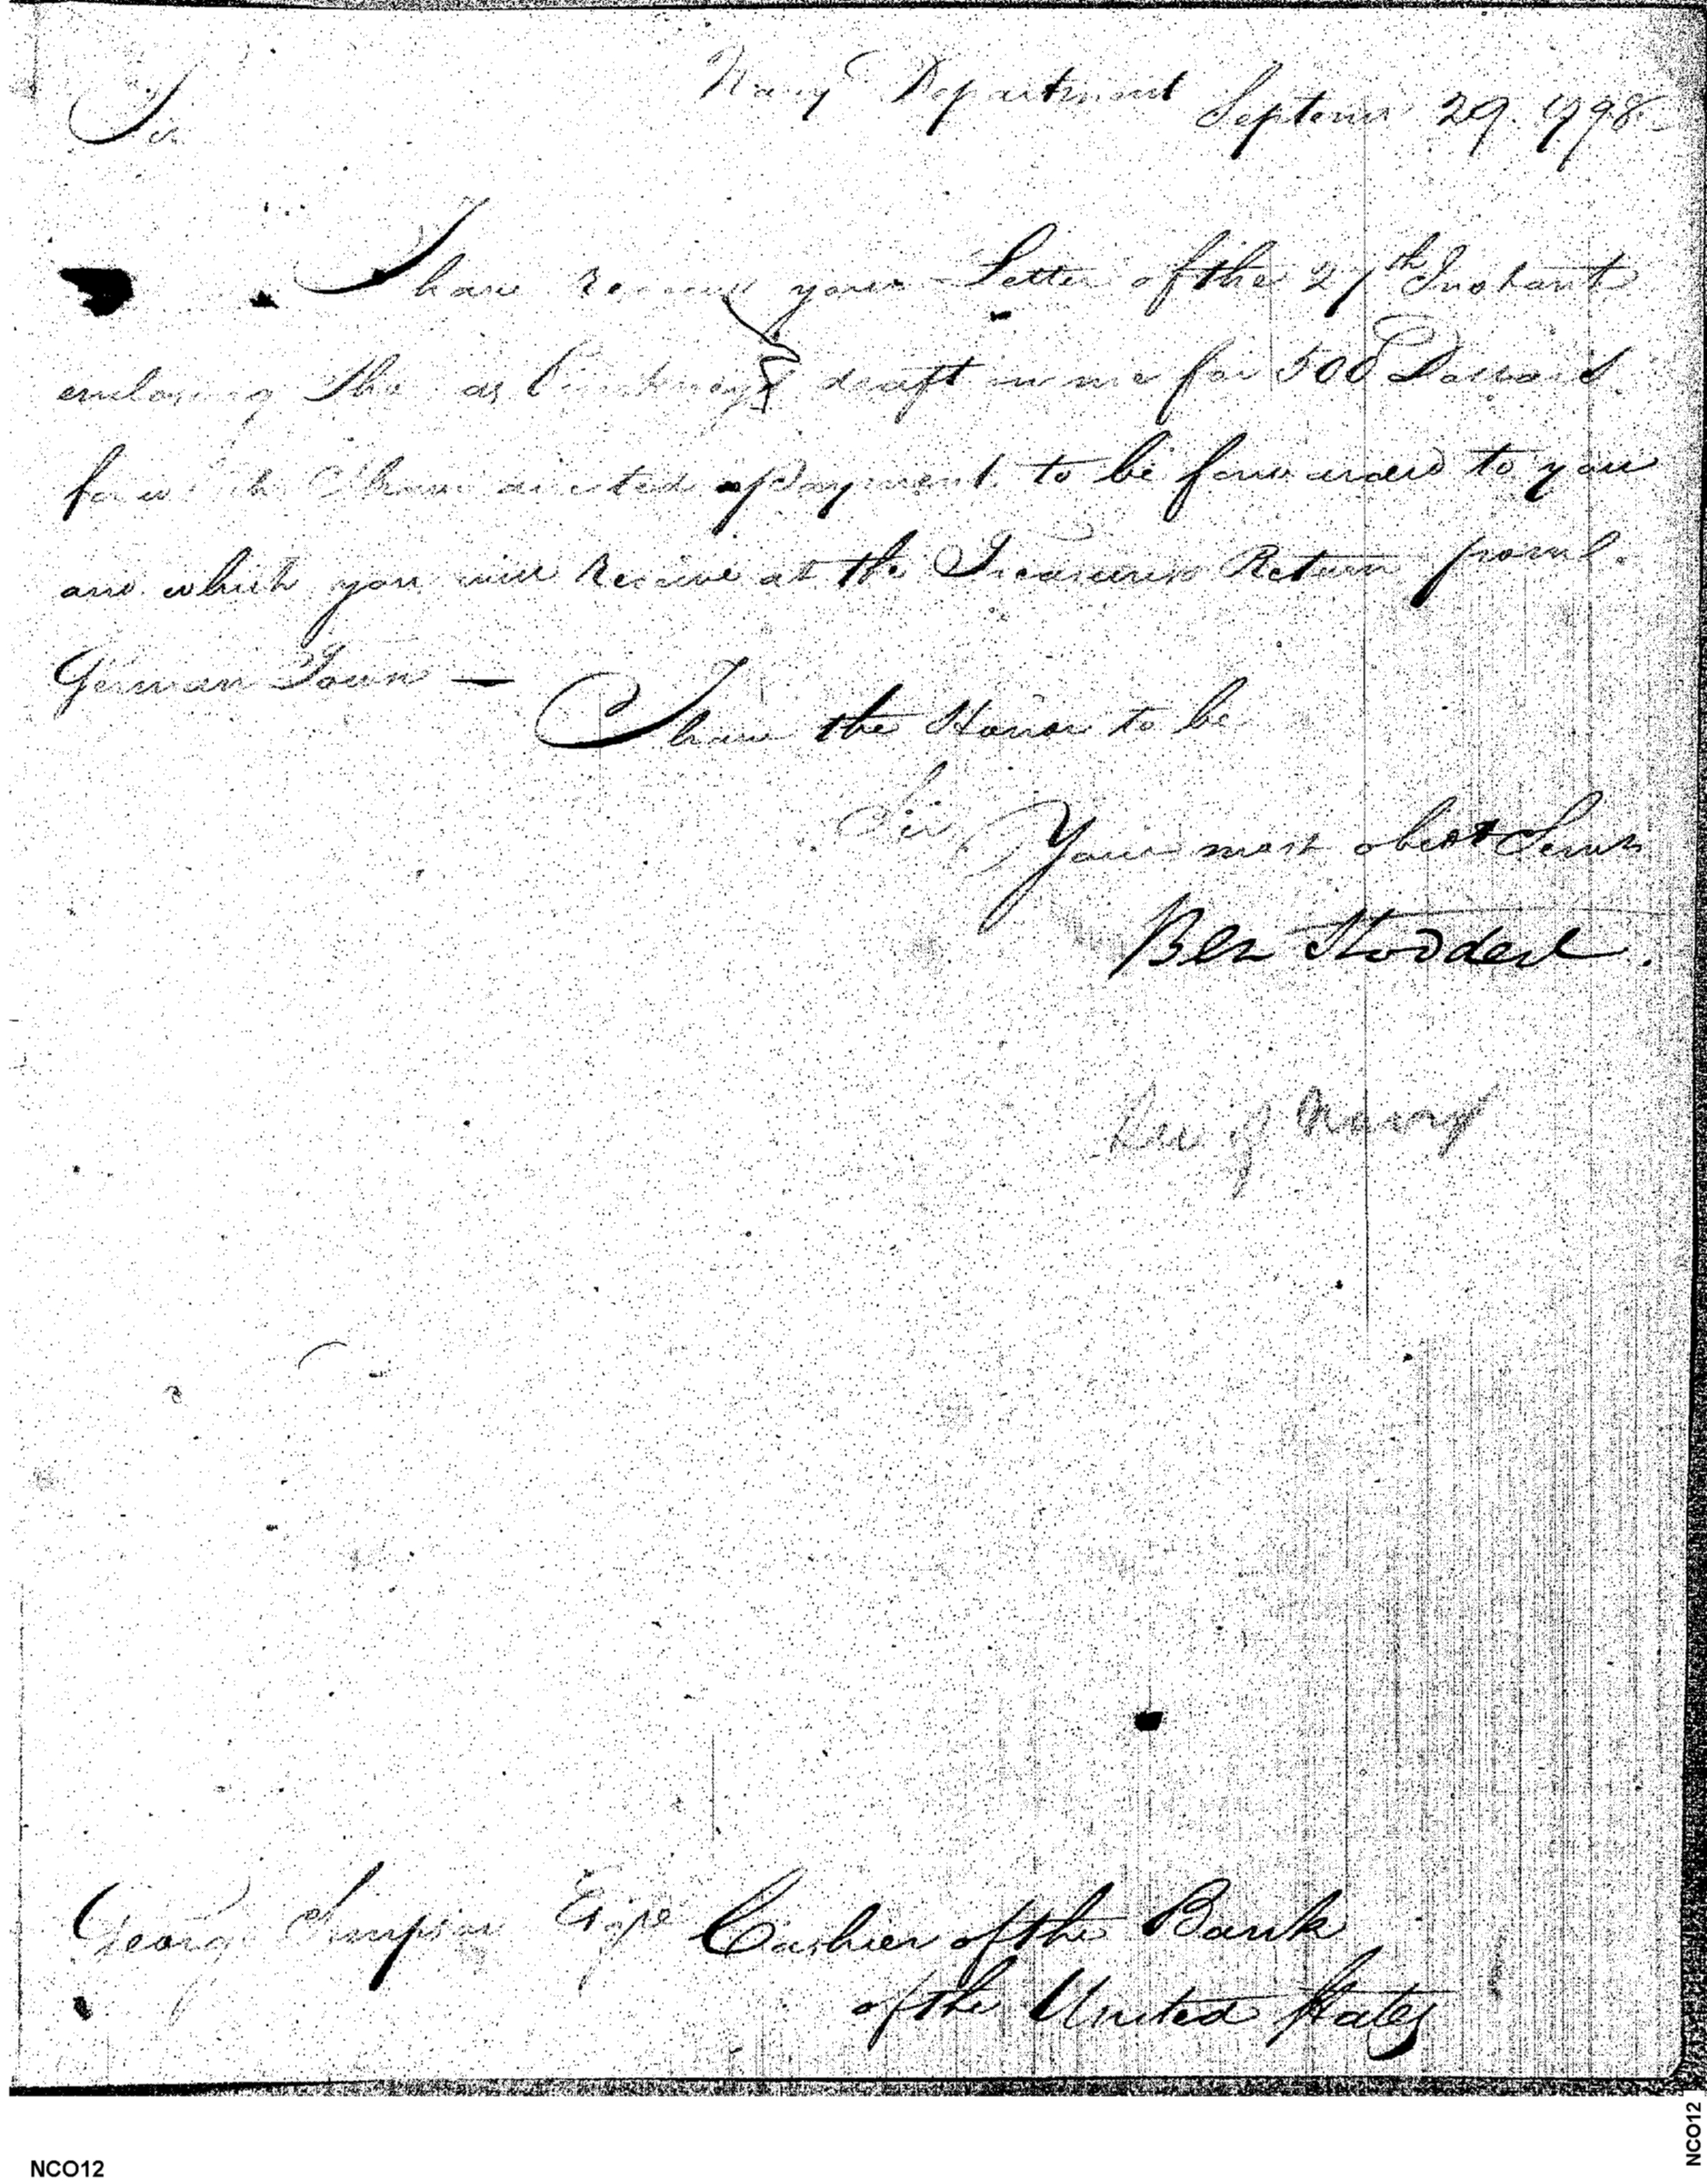 Navy Department September 29. 1798
Sir
I have received your Letter of the 27th Instant
enclosing Thomas Pinckneys draft on me for 500 Dollars
for which I have directed payment to be forwarded to you
and which you will Receive at the Treasurers Return from
German Town —
I have the Honor to be
Sir
Your most obedt Servt
Ben Stoddert.
Sec of Navy
George Simpson Esqre Cashier of the Bank
of the United States
NCO12
NCO12